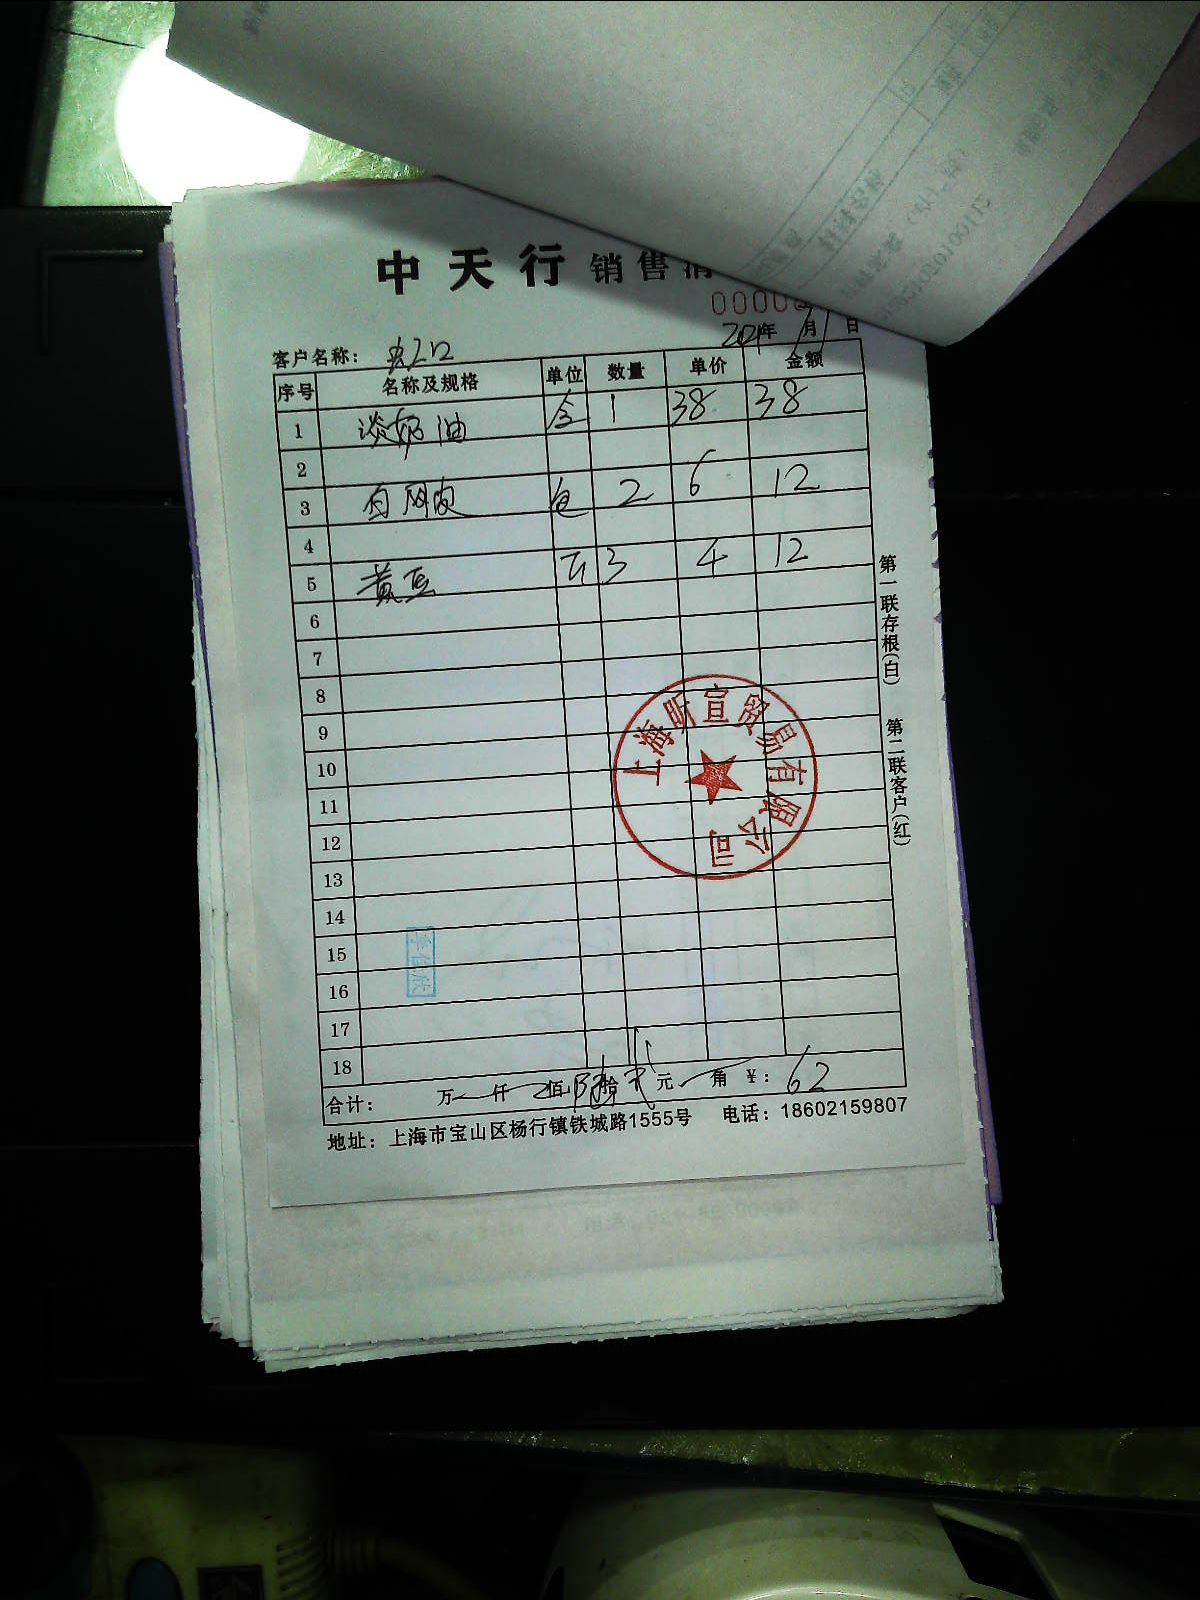 中天行 销售清
0000
年 月 日
客户名称：
序号 名称及规格 单位 数量 单价 金额
1 淡奶油 盒 1 38 38
2
3 包 2 6 12
4
5 黄豆 斤 3 4 12
6
7
8
9
10
11
12
13
14
15
16
17
18
合计： 万 仟 佰 陆拾贰元 角 ￥：62
地址：上海市宝山区杨行镇铁城路1555号 电话：18602159807
第一联存根(白) 第二联客户(红)
上海昕宣贸易有限公司